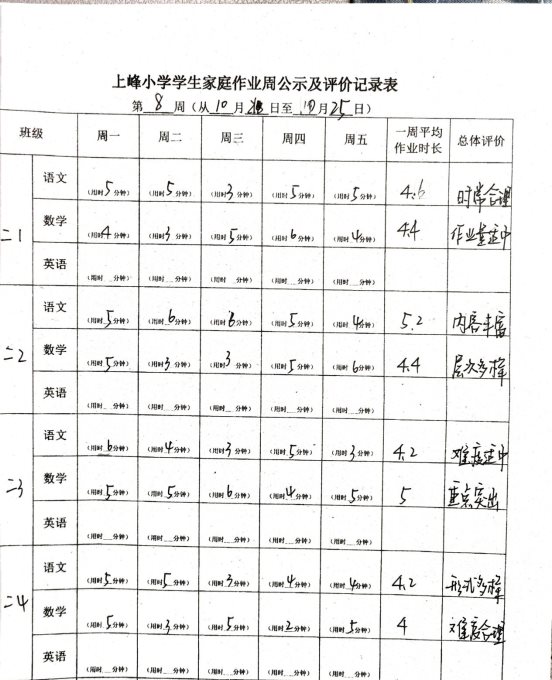 上峰小学学生家庭作业周公示及评价记录表
第 8 周（从 10 月 日至 10 月 25 日）
班级 周一 周二 周三 周四 周五 一周平均作业时长 总体评价
二1 语文 （用时5分钟） （用时5分钟） （用时3分钟） （用时5分钟） （用时5分钟） 4.6 时常合理
数学 （用时4分钟） （用时3分钟） （用时5分钟） （用时6分钟） （用时4分钟） 4.4 作业量适中
英语 （用时 分钟） （用时 分钟） （用时 分钟） （用时 分钟） （用时 分钟）
二2 语文 （用时5分钟） （用时6分钟） （用时6分钟） （用时5分钟） （用时4分钟） 5.2 内容丰富
数学 （用时5分钟） （用时3分钟） （用时3分钟） （用时5分钟） （用时6分钟） 4.4 层次多样
英语 （用时 分钟） （用时 分钟） （用时 分钟） （用时 分钟） （用时 分钟）
二3 语文 （用时6分钟） （用时4分钟） （用时3分钟） （用时5分钟） （用时3分钟） 4.2 难度适中
数学 （用时5分钟） （用时5分钟） （用时6分钟） （用时4分钟） （用时5分钟） 5 重点突出
英语 （用时 分钟） （用时 分钟） （用时 分钟） （用时 分钟） （用时 分钟）
二4 语文 （用时5分钟） （用时5分钟） （用时3分钟） （用时4分钟） （用时4分钟） 4.2 形式多样
数学 （用时5分钟） （用时3分钟） （用时5分钟） （用时2分钟） （用时5分钟） 4 难度合理
英语 （用时 分钟） （用时 分钟） （用时 分钟） （用时 分钟） （用时 分钟）